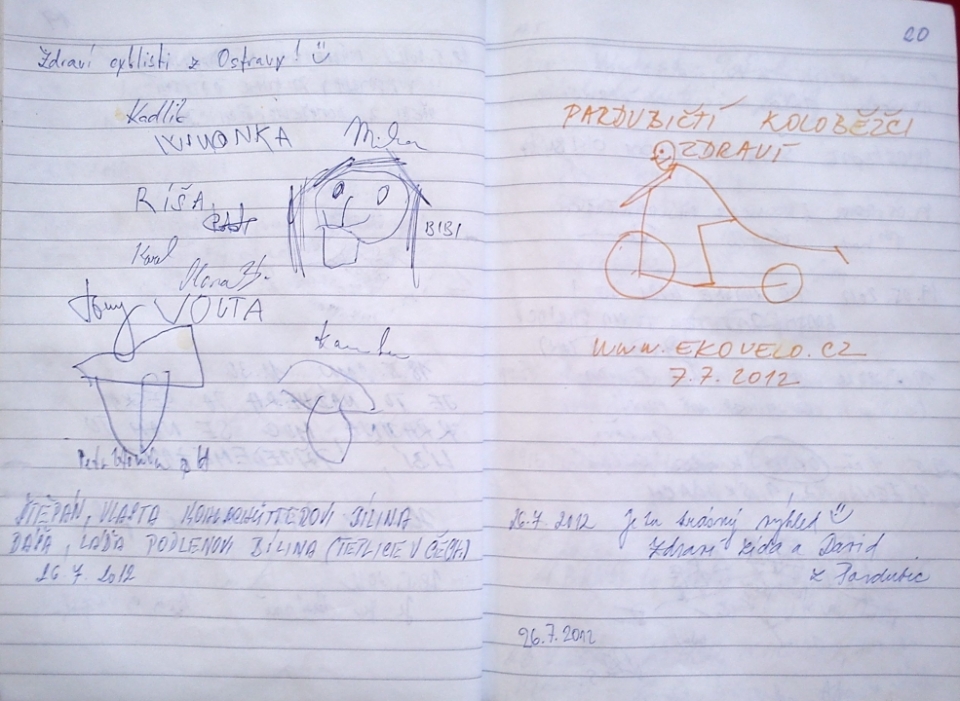 Zdraví cyklisti z Ostravy!
Kadlik
Milan
RÍŠA
BIBI
Karel
Hana
Tony
VOLTA
ŠTĚPÁN, VLASTA BÍLINA
DÁŠA, LAĎA PODLENOVI BÍLINA (TEPLICE V ČECH)
26 7. 2012
20
PARDUBIČTÍ KOLOBĚŽCI
ZDRAVÍ
WWW.EKOVELO.CZ
7.7.2012
26.7 2012 Je tu krásný výhled
Zdraví Lída a David
z Pardubic
26.7.2012